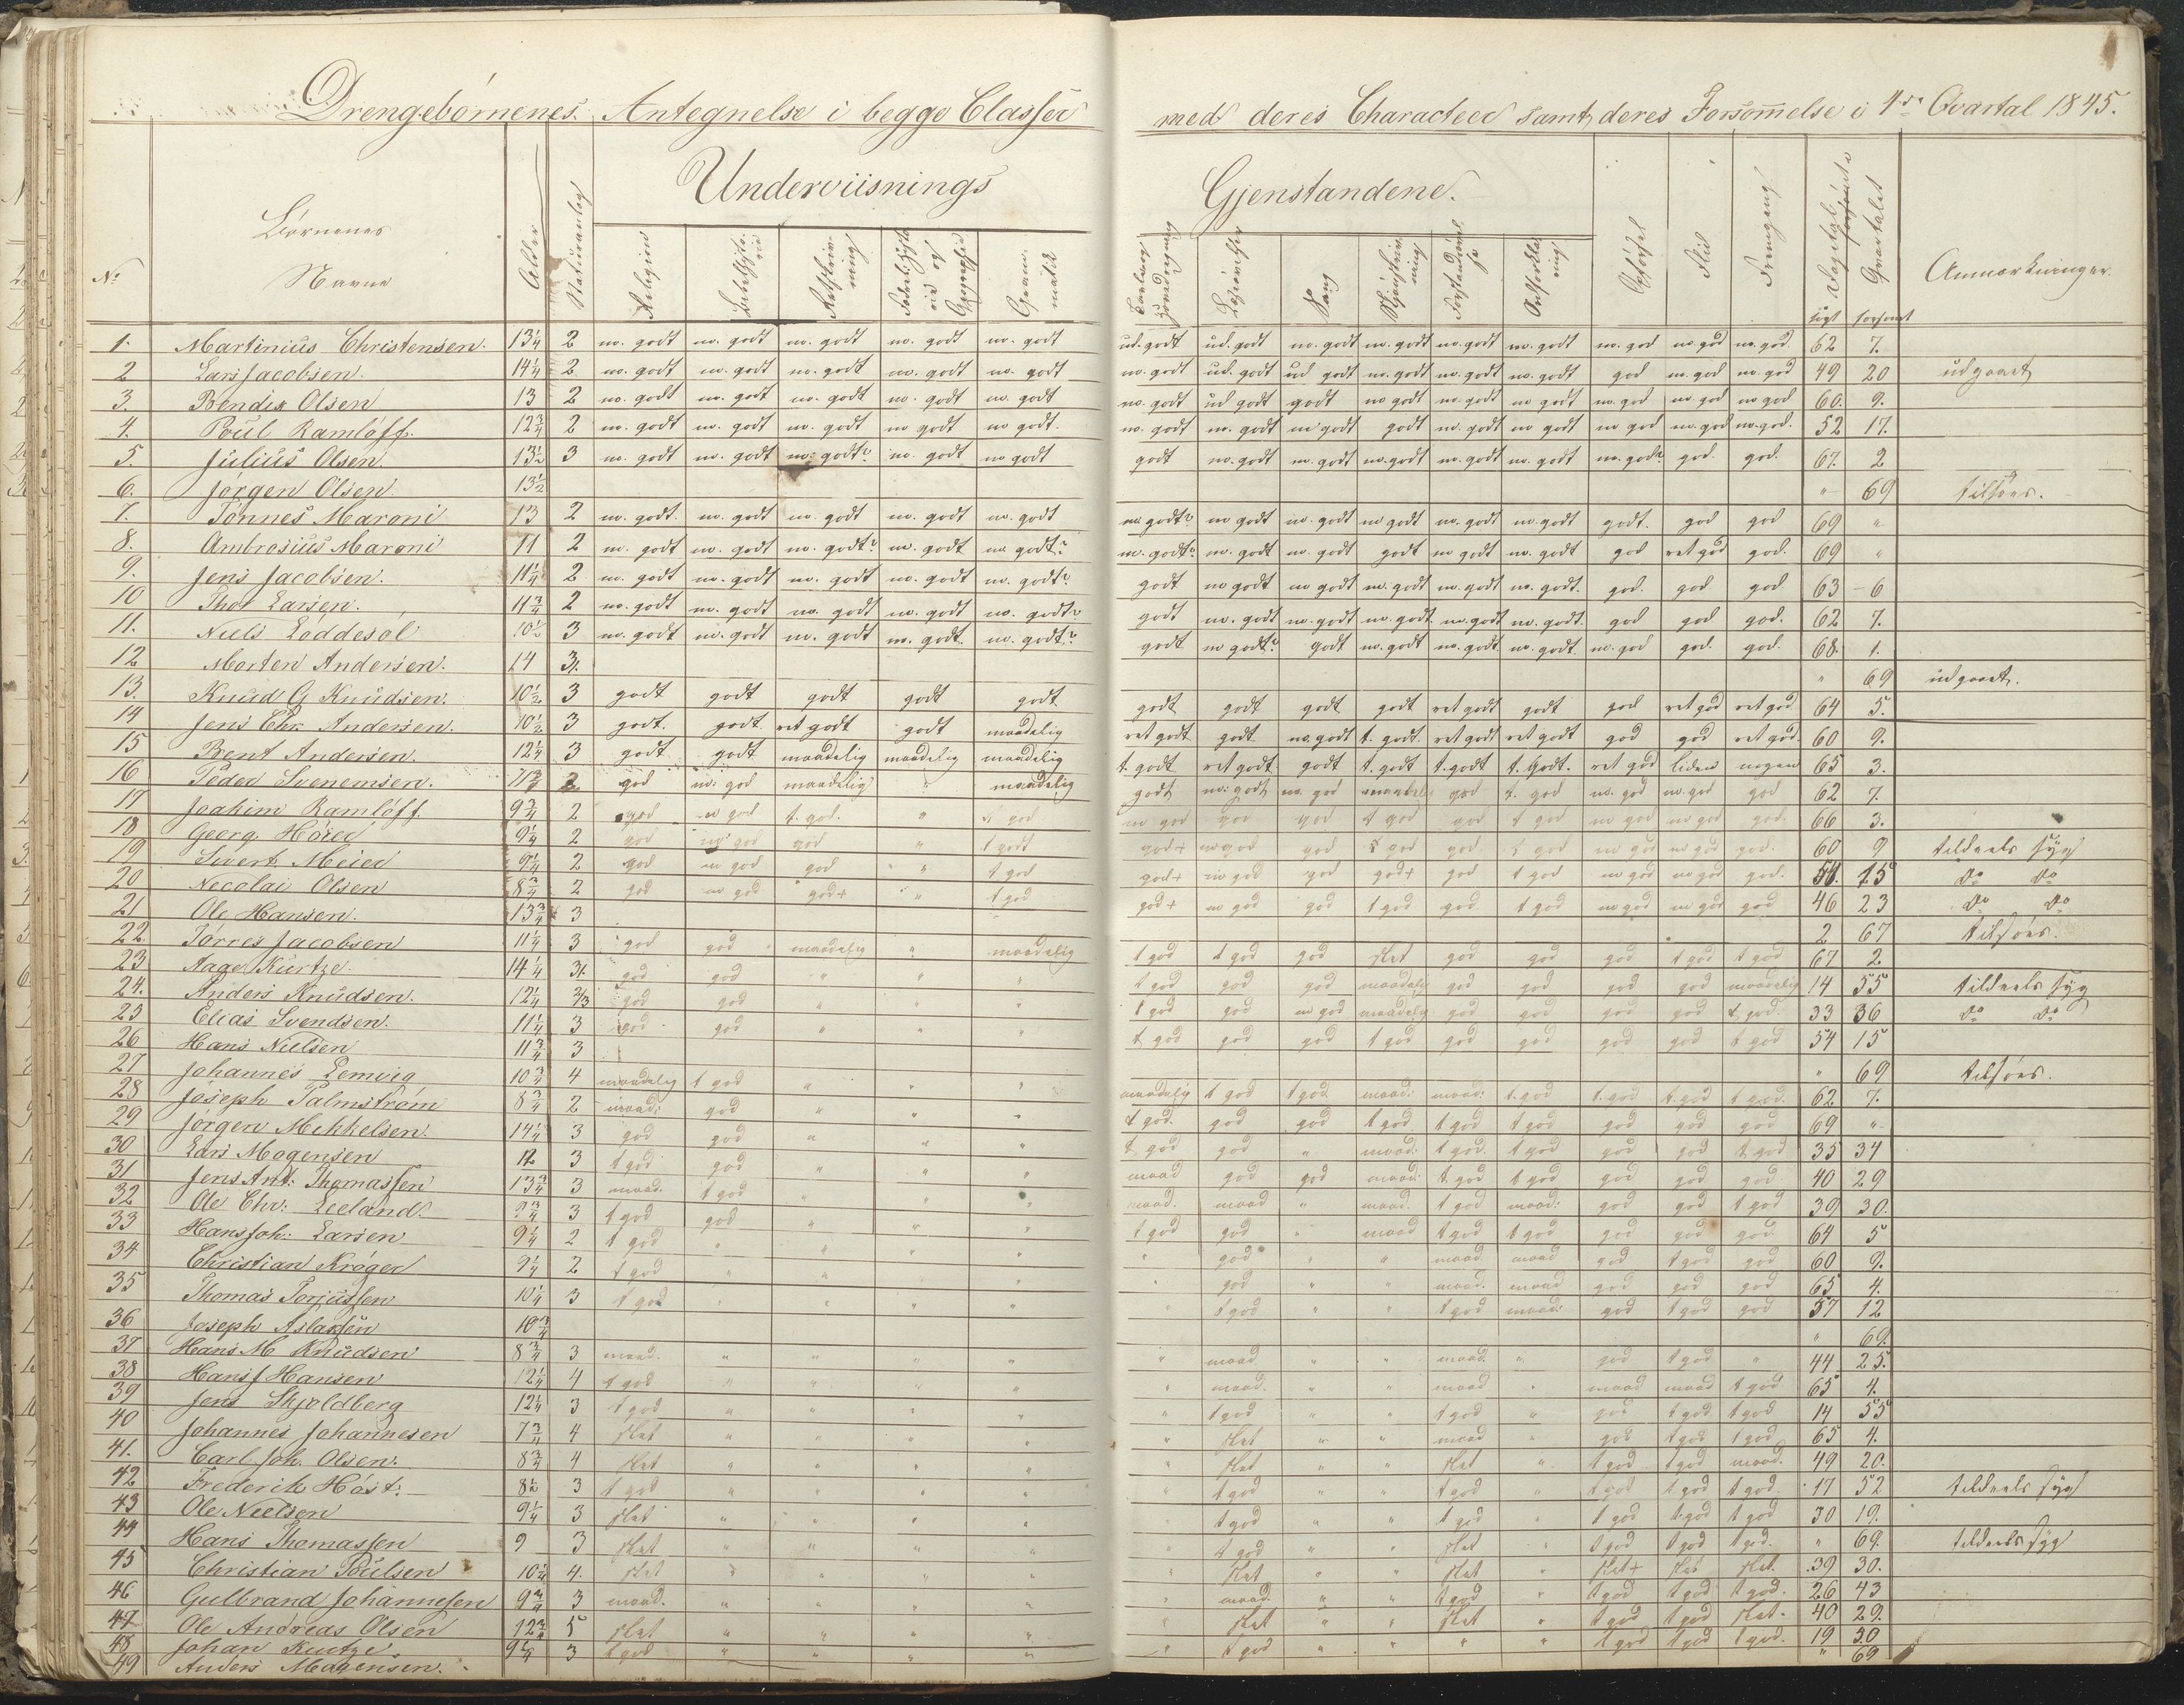 Drengebørnenes Antegnelse i begge Classer med deres Characteer samt deres Forsømmelse i 4de Qvartal 1845.
Underviisnings Gjenstandene.
No Børnenes Navne Alder Naturanlæg Religion Retskrivning Grammatik Sang Opførsel Flid Fremgang Anmærkninger
1. Martinius Christensen. 13¼ 2 m. godt m. godt m. godt m. godt m. godt ud. godt ud. godt m. godt m. godt m. godt m. godt m. god m. god m. god 62 7.
2 Lars Jacobsen. 14¼ 2 m. godt m. godt m. godt m. godt m. godt m. godt ud. godt ud godt m. godt m. godt m. godt god m. god m. god 49 20 udgaaet
3. Bendix Olsen 13 2 m. godt m. godt m. godt m. godt m. godt m. godt ud godt godt m godt m. godt m godt m. god m. god m god 60. 9.
4. Poul Ramløff. 12¾ 2 m. godt m. godt m. godt m godt m godt. m. godt m. godt m godt godt m. godt m godt m god m. god m. god. 52 17.
5. Julius Olsen. 13½ 3 m. godt m. godt m: godt? m. godt m godt godt m. godt m. godt m. godt m. godt m. godt m. god? god. god. 67. 2
6. Jørgen Olsen. 13½ " 69 tilsøes.
7. Tønnes Maroni 13 2 m. godt. m. godt m. godt m. godt m. godt m godt? m godt m. godt m godt m. godt m. godt godt. god god 69 "
8. Ambrosius Maroni 11 2 m. godt m. godt m. godt? m. godt m godt? m. godt? m. godt m. godt godt m godt m. godt god ret god god. 69 "
9. Jens Jacobsen. 11¼ 2 m. godt m. godt m. godt m. godt m. godt? godt m godt m godt m. godt m. godt m. godt. god. god god 63 6
10 Thor Larsen. 11¾ 2 m. godt m. godt m. godt m. godt m. godt? godt m. godt m. godt m. godt m. godt m. godt. god god god. 62 7.
11. Niels Løddesøl 10½ 3 m. godt m. godt m. godt m. godt. m. godt? godt m godt? godt m. godt m. godt m. godt. m. god god. god. 68. 1.
12 Morten Andersen. 14 3. " 69 udgaaet.
13. Knud G Knudsen. 10½ 3 godt godt godt godt godt godt godt godt godt ret godt godt god ret god ret god 64 5.
14 Jens Chr. Andersen. 10½ 3 godt. godt ret godt godt maadelig ret godt godt. m. godt t. godt. ret godt ret godt god god ret god. 60 9.
15 Bent Andersen. 12¼ 3 godt godt maadelig maadelig maadelig t. godt ret godt godt t. godt t. godt t. godt. ret god liden nogen 65 3.
16 Peder Svenemsen. 11¾ god m: god maadelig " maadelig godt m: godt m. god maadelig god t. god m. god m. god god 62 7.
17 Joakim Ramløff. 9¾ 2 god m god t. god. " god m god god god t god god t god m god m god god. 66 3.
18 Georg Høier 9¼ 2 god m god god " t godt god+ m god god god god. god m god m god god. 60 9 tildeels syg
19 Sivert Meier 9¼ 2 god m god god " t god god+ m god god god+ god t god m god m god god. 15 do do
20 Necolai Olsen 8¾ 2 god m god god+ " t god god+ m god god t god god t god m god m god god 46 23 do do
21 Ole Hansen. 13¾ 3 2 67 tilsøes.
22. Tørres Jacobsen 11¼ 3 god god maadelig " maadelig t god t god god slet god god god t god t god 67 2.
23 Aage Kurtze. 14¼ 3. god god " " " t god god god maadelig god god god god maadelig 14 55 tildeels syg
24. Anders Knudsen. 12¼ 2/3 god god " " " t god god m god maadelig god god god god t god. 33 36 do do
25 Elias Svendsen. 11¼ 3 god god " " " t god god god t god god god god god t god 54 15
26 Hans Nielsen 11¾ 3 " 69 tilsøes.
27 Johannes Lemvig 10¾ 4 maadelig t god " " " maadelig t god t god maad: maad: t god t. god t. god t god. 62 7.
28 Joseph Palmstrøm 8¾ 2 maad: god " " " t god. god god t god t god t god god god god 69 "
29 Jørgen Mikkelsen. 14¼ 3 god god " " " t god god " maad: t god. t god god god t god 35 34
30 Lars Mogensen 12 3 t god god " " " maad god god maad: t. god t god god god god. 40 29
31 Jens Ant: Thomassen 13¾ 3 maad. t god " " maad. maad " maad. t god maad: god god t god 39 30.
32 Ole Chr: Leeland. 9¾ 3 t god god " " " t god god " maad t god t god god god god 64 5
33 Hans Joh: Larsen 9¼ 2 t god " " " " " god " " maad maad god t god god 60 9.
34 Christian Krøger 9¼ 2 t god " " " " god " " maad. maad god god god 65 4.
35 Thomas Torjussen 10¼ 3 t god " " " " " t god " " t god maad: god t god god 57 12
36 Joseph Aslaksen 10¾ " 69.
37 Hans M Knudsen 8¾ 3 maad. " " " " " maad " " maad. " god t god " 44 25.
38 Hans J Hansen 12¼ 4 t god " " " " " maad. " " maad " maad maad t god 65 4.
39 Jens Skjoldberg 12¼ 3 t god " " " " " t god " " t god " god t god t god 14 55
40 Johannes Johannesen 7¾ 4 slet " " " " " slet " " maad " god t god t god 65 4.
41. Carl Joh. Olsen. 8¾ 4 slet " " " " " slet " " slet " t god t god maad. 49 20.
42 Frederik Høst. 8½ 3 t god " " " " " t god " " t god " t god t god t god. 17 52 tildeels syg
43 Ole Nielsen 9¼ 3 slet " " " " t god " " t god " t god t god t god 30 19.
44 Hans Thomassen 9 3 slet " " " " " t god " " slet " t god t god t god. " 69. tildeels syg
45 Christian Poulsen 10¼ 4. slet " " " " " slet " " slet " slet+ slet slet. 39 30.
46 Gulbrand Johannesen 9¾ 3 maad. " " " " " maad. " " t god " t god t god t god. 26 43
47 Ole Andreas Olsen 12¾ 5 slet " " " " " slet " " slet " t god t god slet. 40 29.
48 Johan Kurtze 9¼ 3 t god " " " " " t god " " " " t god t god t god. 19 50
49 Anders Mogensen. " 69